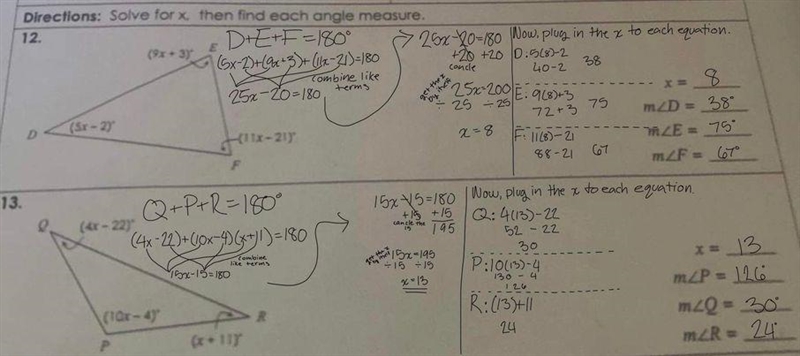 Directions: Solve for x, then find each angle measure.
12.
(9x + 3)°
E
D
(5x – 2)°
(11x – 21)°
F
D+E+F=180°
(5x-2)+(9x+3)+(11x-21)=180
combine like terms
25x-20=180
25x-20=180
+20 +20
cancle
get the x by itself
25x=200
÷25 ÷25
x=8
Now, plug in the x to each equation.
D: 5(8)-2
40-2 38
E: 9(8)+3
72+3 75
F: 11(8)-21
88-21 67
x = 8
m∠D = 38°
m∠E = 75°
m∠F = 67°
13.
Q
(4x – 22)°
(10x – 4)°
P
(x + 11)°
R
Q+P+R=180°
(4x-22)+(10x-4)(x+11)=180
combine like terms
15x-15=180
15x-15=180
+15 +15
cancle the 15
195
get the x by itself
15x=195
÷15 ÷15
x=13
Now, plug in the x to each equation.
Q: 4(13)-22
52-22
30
P: 10(13)-4
130-4
126
R: (13)+11
24
x = 13
m∠P = 126°
m∠Q = 30°
m∠R = 24°